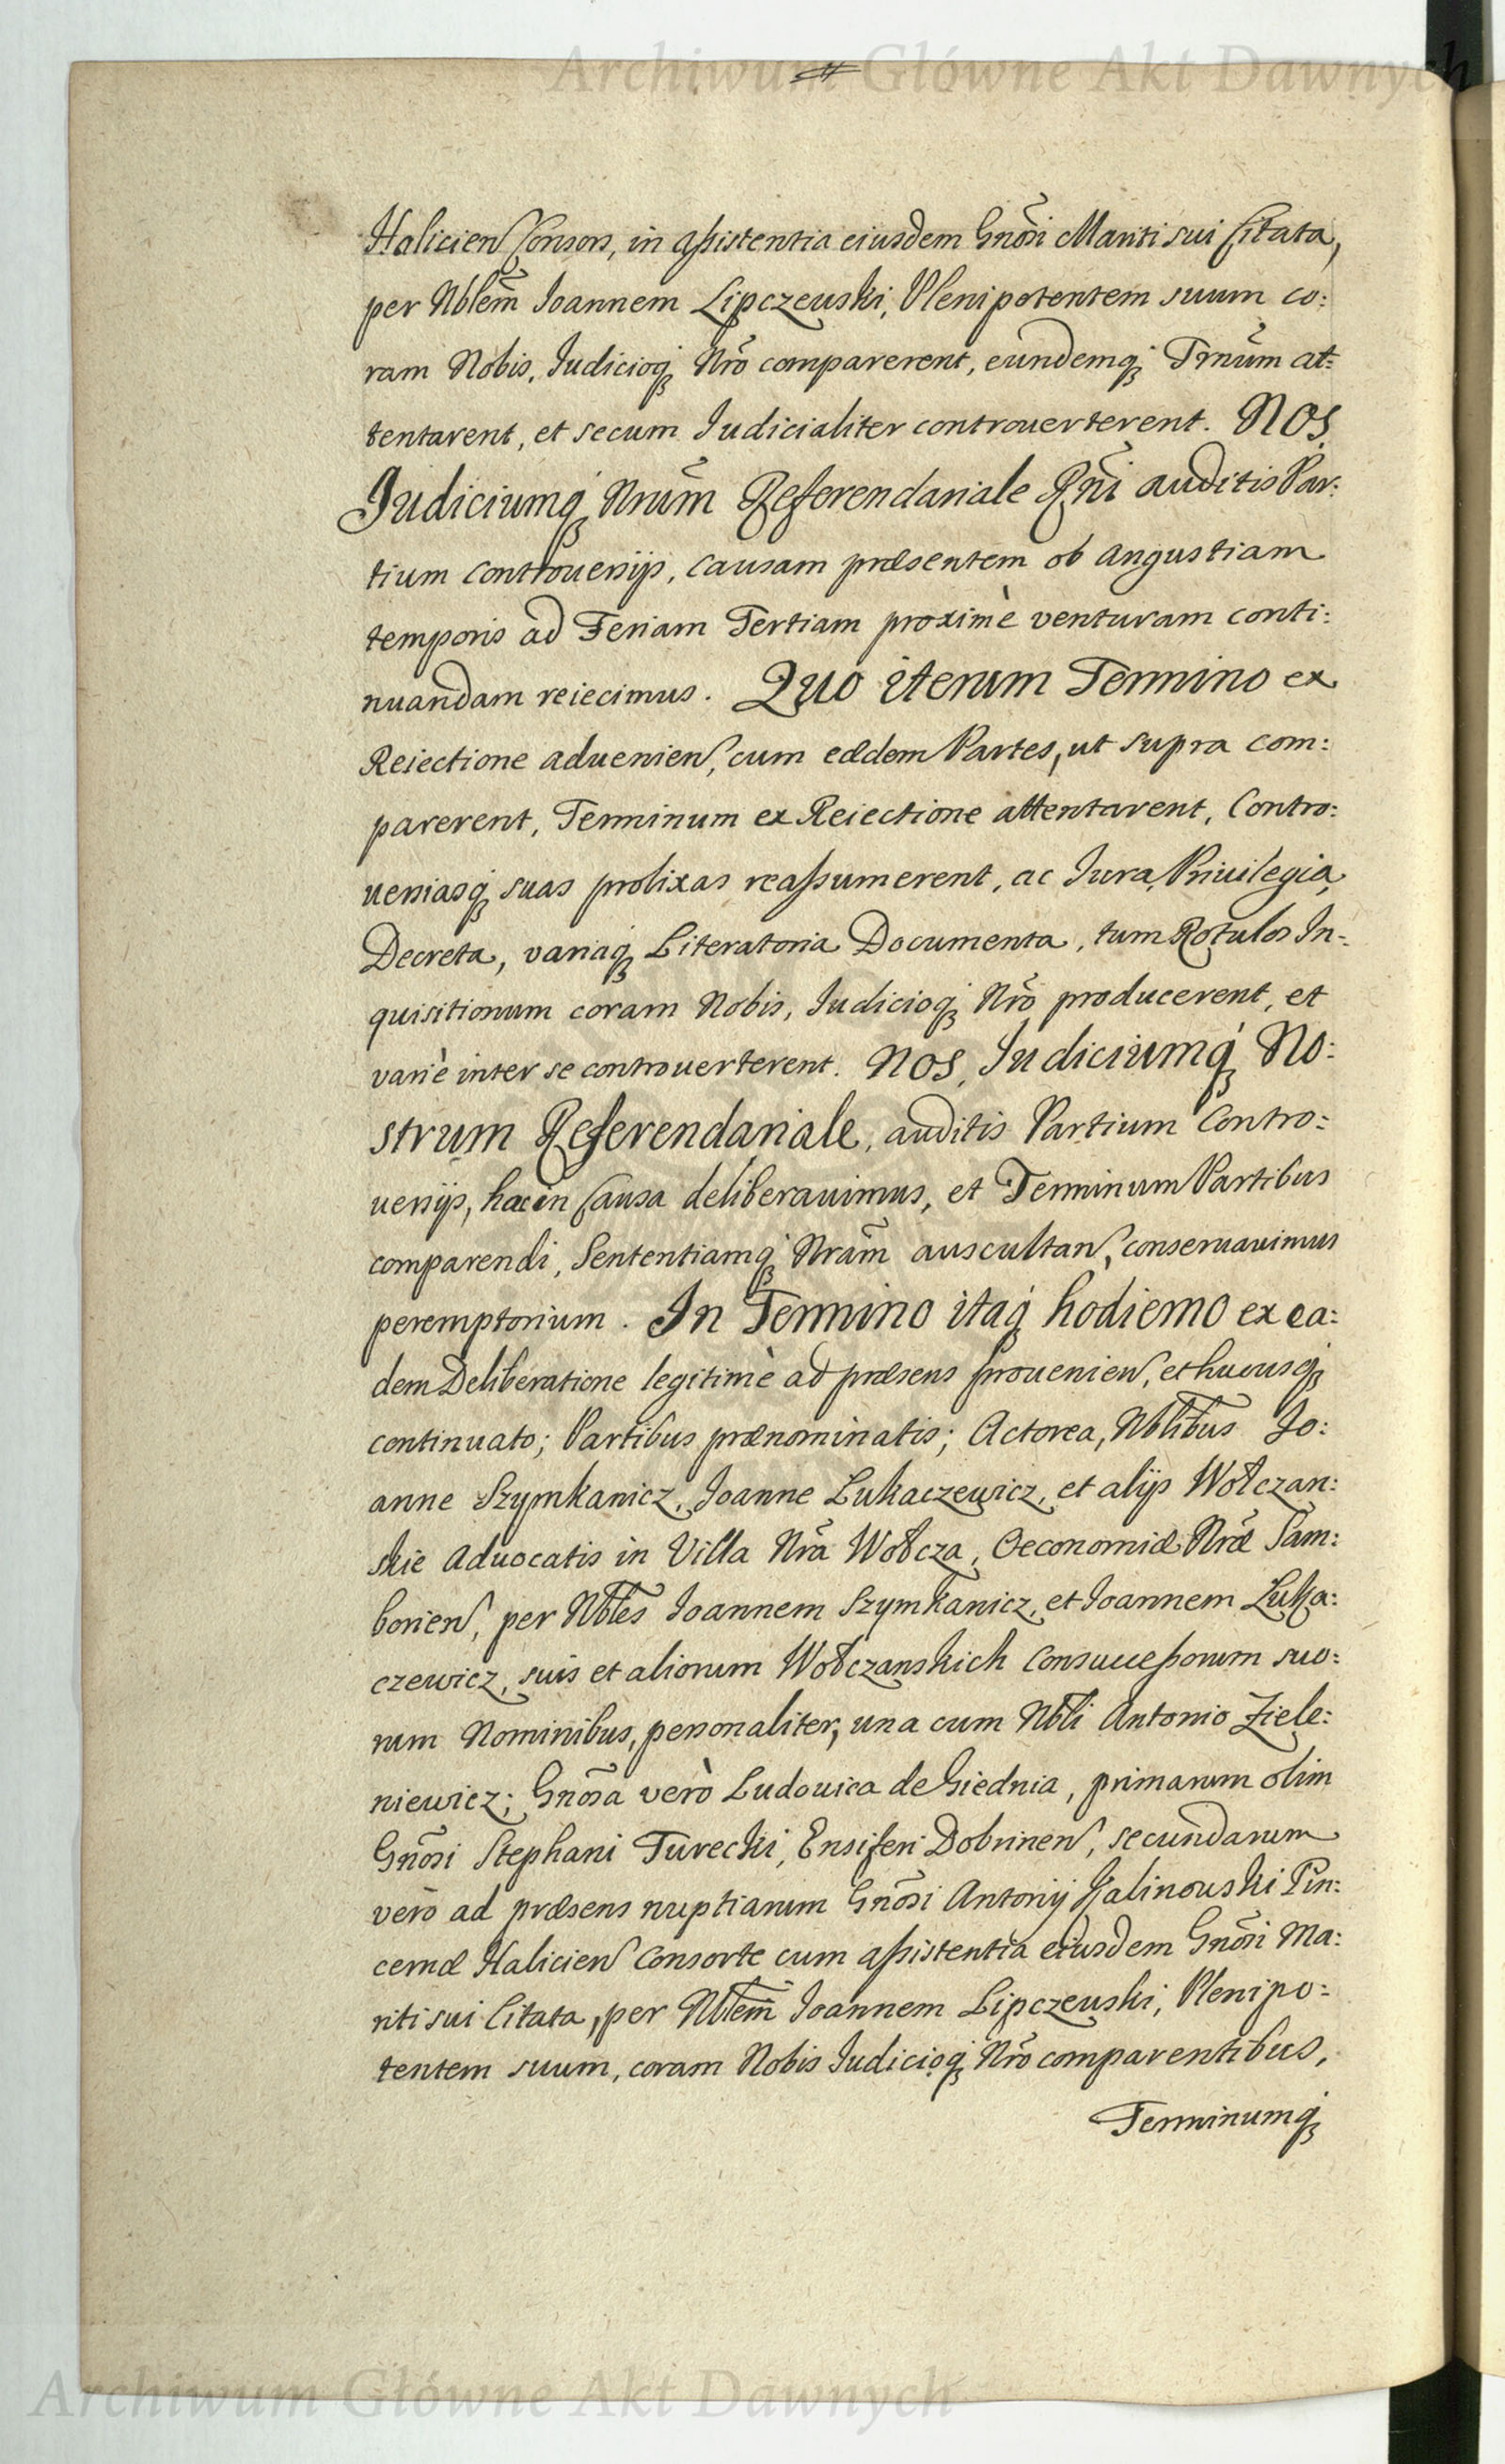 Archiwum Główne Akt Dawnych
Halicien Consors, in assistentia eiusdem Gnosi Mariti sui Citata,
per Nblem Joannem Lipczewski, Plenipotentem suum co:
ram Nobis, Judicioq Nro comparerent, eundemq Trnum at:
tentarent, et secum Judicialiter controuerterent. Nos
Judiciumq Nrum Referendariale Rni auditis Par:
tium Controuersijs, causam præsentem ob angustiam
temporis ad Feriam Tertiam proximè venturam conti:
nuandam reiecimus. Quo iterum Termino ex
Reiectione aduenien, cum eædem Partes, ut supra com:
parerent, Terminum ex Reiectione attentarent, Contro:
uersiasq suas prolixas reassumerent, ac Jura, Priuilegia,
Decreta, variaq Literatoria Documenta, tum Rotulos In:
quisitionum coram Nobis, Judicioq Nro producerent, et
variè inter se controuerterent. Nos, Judiciumq No:
strum Referendariale, auditis Partium Contro:
uersijs, hac in Causa deliberauimus, et Terminum Partibus
comparendi, Sententiamq Nram auscultan, conseruauimus
peremptorium. In Termino itaq hodierno ex ea:
dem Deliberatione legitimè ad præsens prouenien, et hucusq
continuato; Partibus prænominatis; Actorea, Nblibus Jo:
anne Szymkanicz, Joanne Lukaczewicz, et alijs Wołczan:
skie Aduocatis in Villa Nra Wołcza, Oeconomiæ Nræ Sam:
borien, per Nbles Joannem Szymkanicz, et Joannem Luka:
czewicz, suis et aliorum Wołczanskich Consuccessorum suo:
rum Nominibus, personaliter, una cum Nbli Antonio Ziele:
niewicz; Gnosa verò Ludouica de Giednia, primarum olim
Gnosi Stephani Turecki, Ensiferi Dobrinen, secundarum
verò ad præsens nuptiarum Gnosi Antonij Kalinouski Pin:
cernæ Halicien Consorte cum assistentia eiusdem Gnosi Ma:
riti sui Citata, per Nblem Joannem Lipczewski, Plenipo:
tentem suum, coram Nobis Judicioq Nro comparentibus,
Terminumq
Archiwum Główne Akt Dawnych